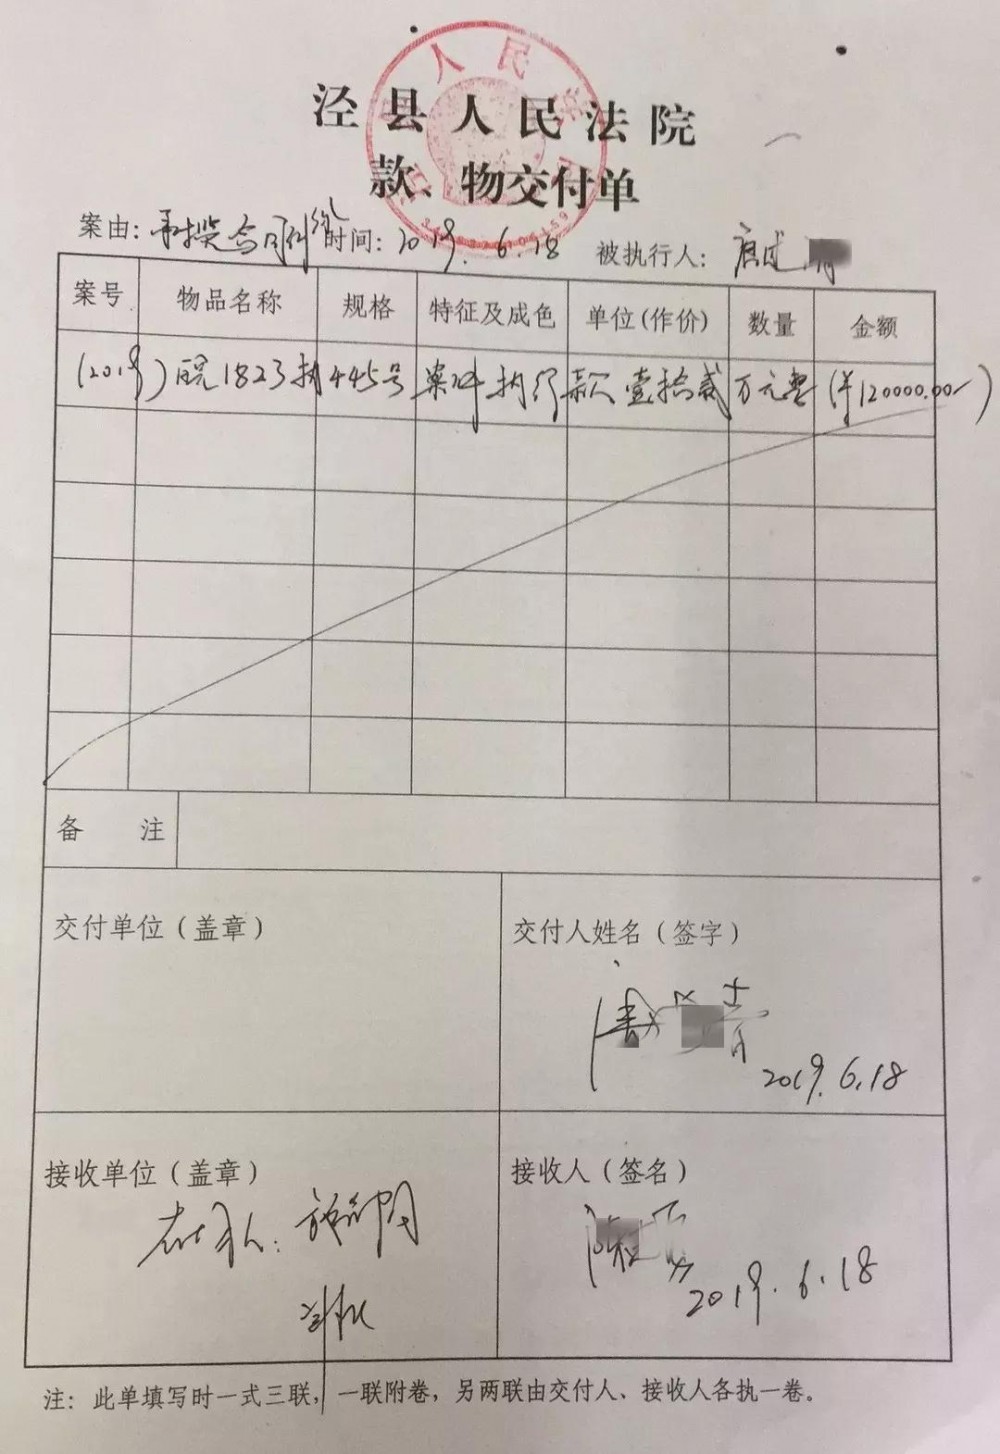 泾县人民法院
款、物交付单
案由: 合同 时间: 2019.6.18 被执行人:
案号 物品名称 规格 特征及成色 单位(作价) 数量 金额
(2019)皖1823执445号案件执行款壹拾贰万元整(¥120000.00)
备 注
交付单位(盖章) 交付人姓名(签字)
2019.6.18
接收单位(盖章) 接收人(签名)
在场人:
2019.6.18
注: 此单填写时一式三联, 一联附卷, 另两联由交付人、接收人各执一卷。